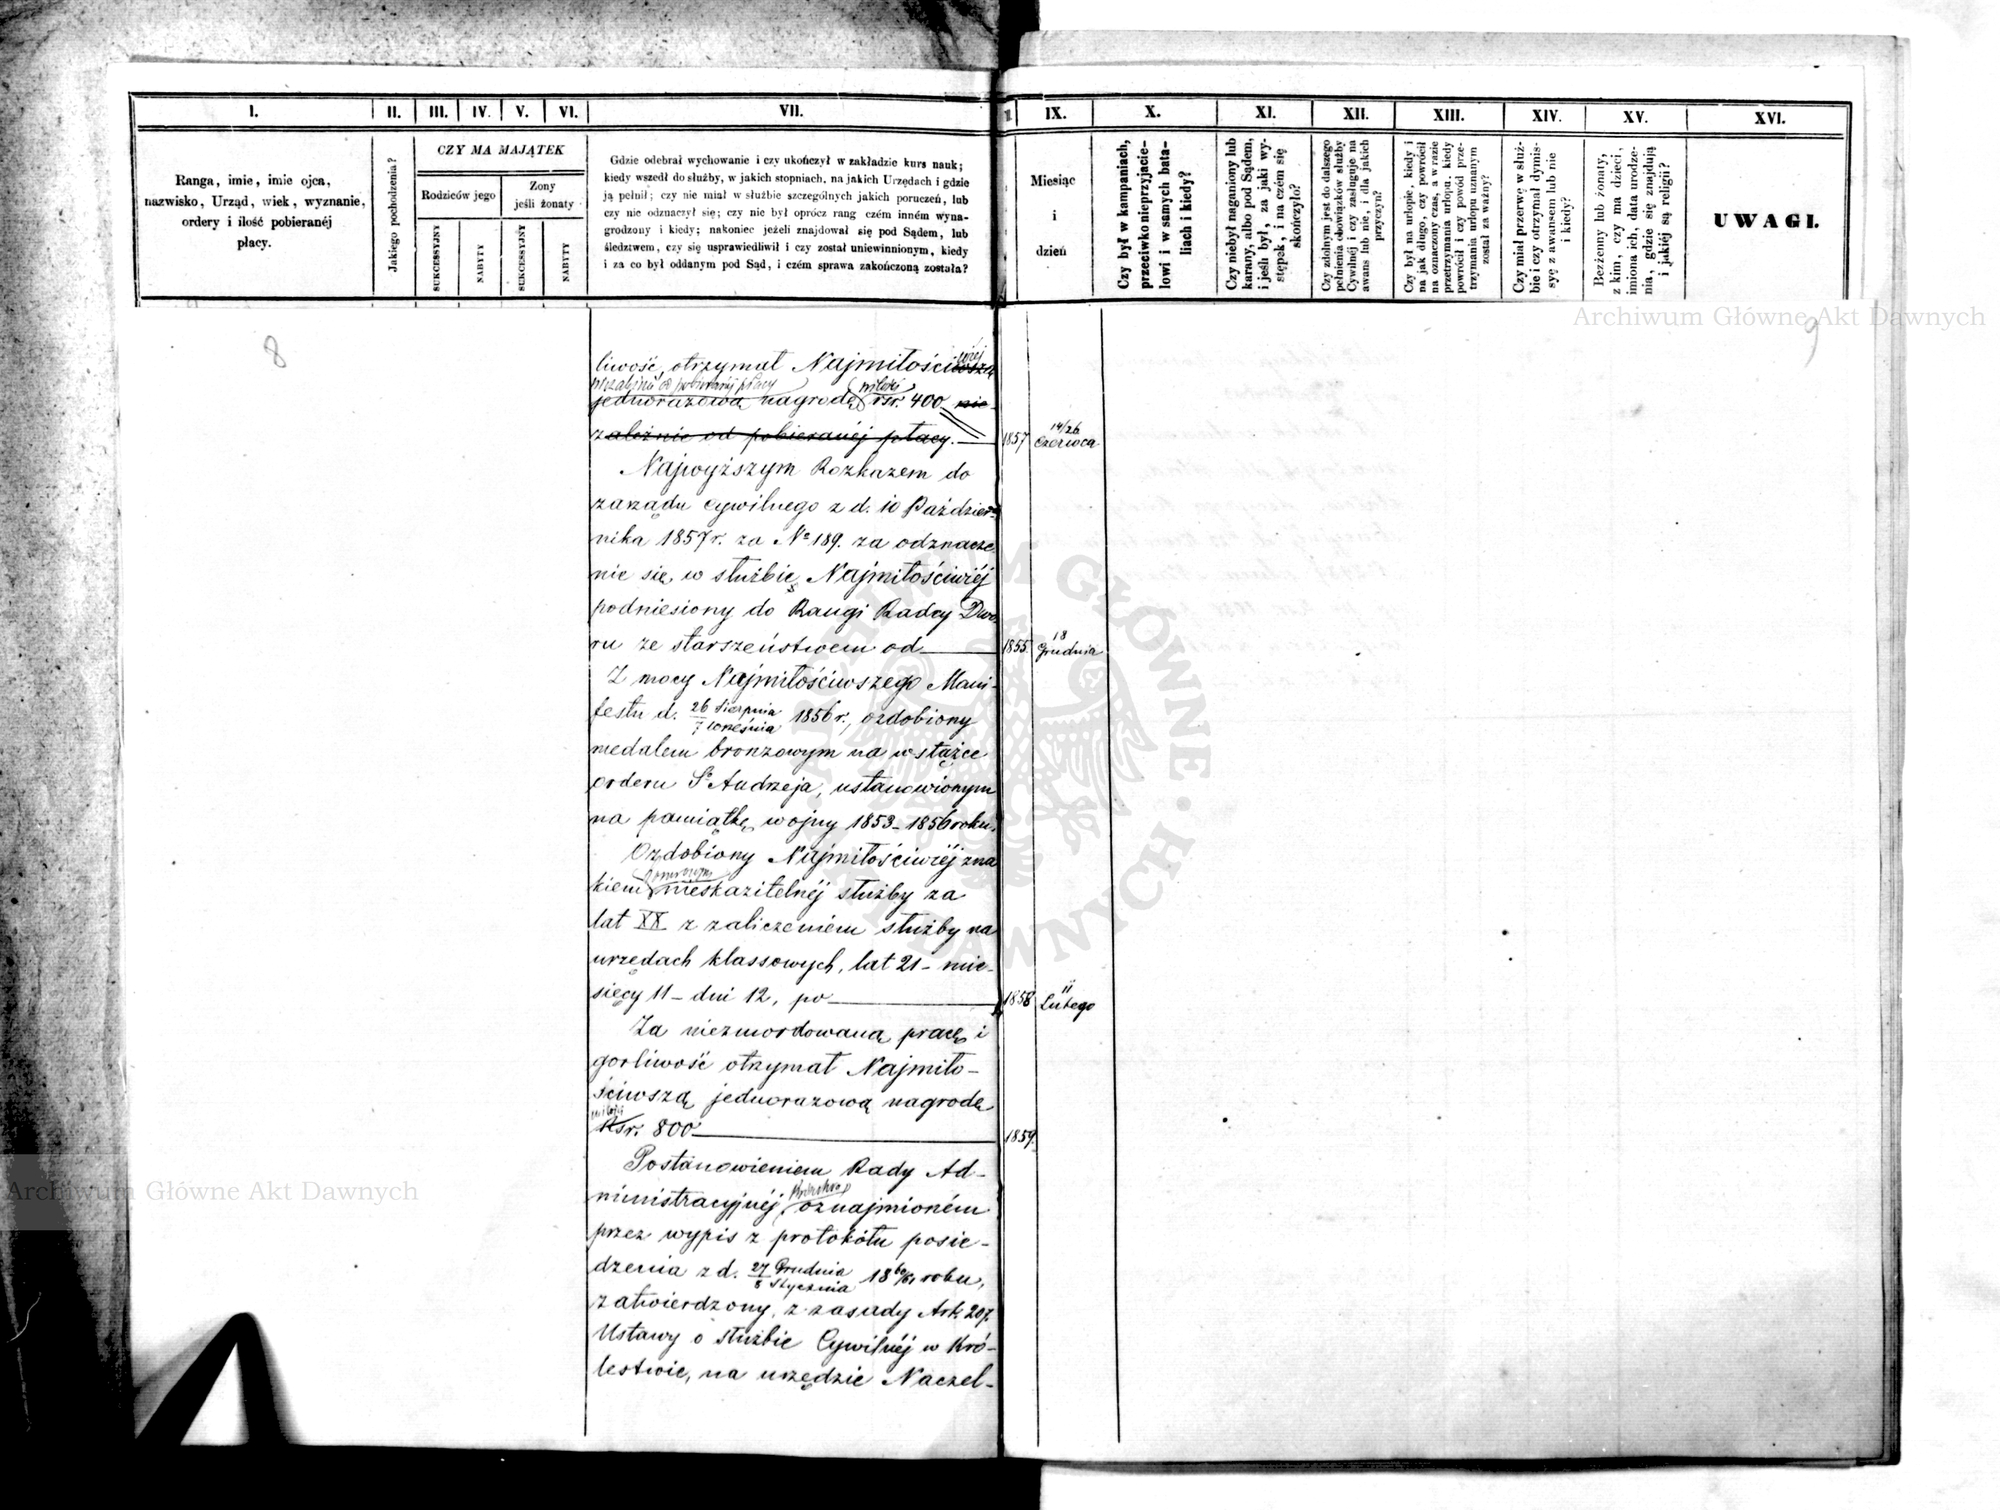 I.
II.
III.
IV.
V.
VI.
VII.
IX.
X.
XI.
XII.
XIII.
XIV.
XV.
XVI.
Ranga, imie, imie ojca,
nazwisko, Urząd, wiek, wyznanie,
ordery i ilość pobieranéj
płacy.
Jakiego pochodzenia?
CZY MA MAJĄTEK
Rodziców jego
Żony
jeśli żonaty
SUKCESSYJNY
NABYTY
SUKCESSYJNY
NABYTY
Gdzie odebrał wychowanie i czy ukończył w zakładzie kurs nauk;
kiedy wszedł do służby, w jakich stopniach, na jakich Urzędach i gdzie
ją pełnił; czy nie miał w służbie szczególnych jakich poruczeń, lub
czy nie odznaczył się; czy nie był oprócz rang czém inném wyna-
grodzony i kiedy; nakoniec jeżeli znajdował się pod Sądem, lub
śledztwem, czy się usprawiedliwił i czy został uniewinnionym, kiedy
i za co był oddanym pod Sąd, i czém sprawa zakończoną została?
Miesiąc
i
dzień
Czy był w kampaniach,
przeciwko nieprzyjacie-
lowi i w samych bata-
liach i kiedy?
Czy niebył nagannionym lub
karany, albo pod Sądem,
i jeśli był, za jaki wy-
stępek, i na czém się
skończyło?
Czy zdolnym jest do dalszego
pełnienia obowiązków służby
Cywilnéj i czy zasługuje na
awans lub nie, i dla jakich
przyczyn?
Czy był na urlopie, kiedy i
na jak długo, czy powrócił
na oznaczony czas, a w razie
przetrzymania urlopu, kiedy
powrócił i czy powód prze-
trzymania urlopu uznanym
został za ważny?
Czy miał przerwę w służ-
bie i czy otrzymał dymis-
syę z awansem lub nie
i kiedy?
Bezżenny lub żonaty,
z kim, czy ma dzieci,
imiona ich, data urodze-
nia, gdzie się znajdują
i jakiéj są religii?
UWAGI.
Archiwum Główne Akt Dawnych
8
9
liwość, otrzymał Najmiłościwszą
wiéj
niezależnie od pobieranéj płacy
jednorazową nagrodę rsr. 400 nie
zależnie od pobieranéj płacy.
1857
14/26
Czerwca
Najwyższym Rozkazem do
zarządu cywilnego z d. 10 Paździer-
nika 1857 r. za No 189. za odznacze
nie się w służbie, Najmiłościwiéj
podniesiony do Rangi Radcy Dwo
ru ze starszeństwem od
1855
18
Grudnia
Z mocy Najmiłościwszego Mani-
festu d. 26 Sierpnia/7 Września 1856 r., ozdobiony
medalem bronzowym na wstążce
orderu Sgo Andrzeja, ustanowionym
na pamiątkę wojny 1853-1856 roku.
Ozdobiony Najmiłościwiéj zna
kiem nieskazitelnéj służby za
lat XX z zaliczeniem służby na
urzędach klassowych, lat 21- mie-
sięcy 11- dni 12, po
1858
11
Lutego
Za niezmordowaną pracę i
gorliwość otrzymał Najmiło-
ściwszą jednorazową nagrodę
Rsr. 800
1859.
Postanowieniem Rady Ad-
ministracyjnéj Królestwa oznajmioném
przez wypis z protokółu posie-
dzenia z d. 27 Grudnia/8 Stycznia 1860/61 roku,
zatwierdzony, z zasady Art. 207.
Ustawy o służbie Cywilnéj w Kró-
lestwie, na urzędzie Naczel-
ARCHIWUM GŁÓWNE AKT DAWNYCH
Archiwum Główne Akt Dawnych